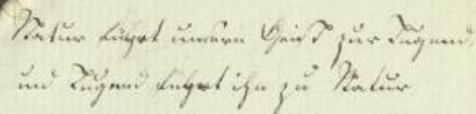 Natur führt unsern Geist zur Tugend,
und Tugend führt ihn zu Natur